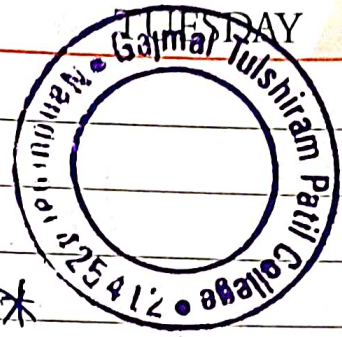 TUESDAY
Gajmal Tulshiram Patil College
425412
*